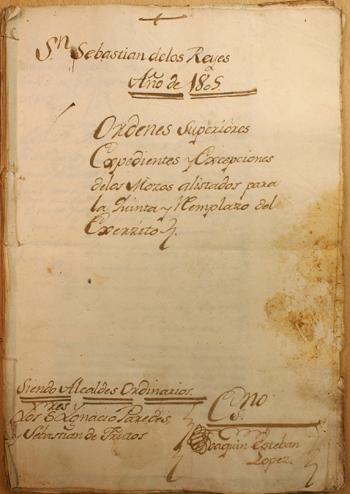 Sn Sebastian de los Reyes
Año de 1805
Ordenes Superiores
Expedientes y Excepciones
de los Mozos alistados para
la Quinta y Remplazo del
Exercito
Siendo Alcaldes Ordinarios
los Sres Ygnacio Paredes
y Sebastian de Frutos
Esno
Joaquin Esteban
Lopez